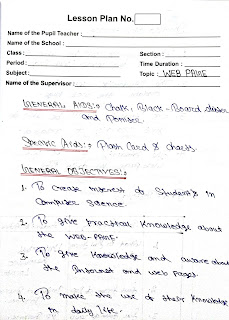 Lesson Plan No.
Name of the Pupil Teacher :
Name of the School :
Class : Section :
Period : Time Duration :
Subject : Topic : WEB PAGE
Name of the Supervisor :
GENERAL AIDS:- Chalk, Black-Board duster
and Pointer.
Specific Aids:- Flash Card & charts.
GENERAL OBJECTIVES:-
1. To create interest of Student's in
Computer Science.
2. To give practical knowledge about
the WEB-PAGE.
3. To give knowledge and aware about
the Internet and web pages.
4. To make the use of their knowledge
in daily life.